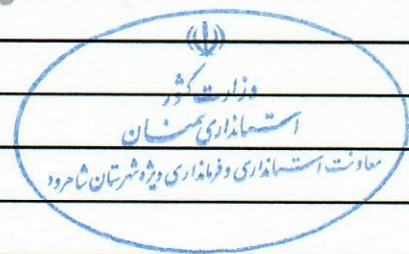 وزارت کشور
استانداری سمنان
معاونت استانداری و فرمانداری ویژه شهرستان شاهرود